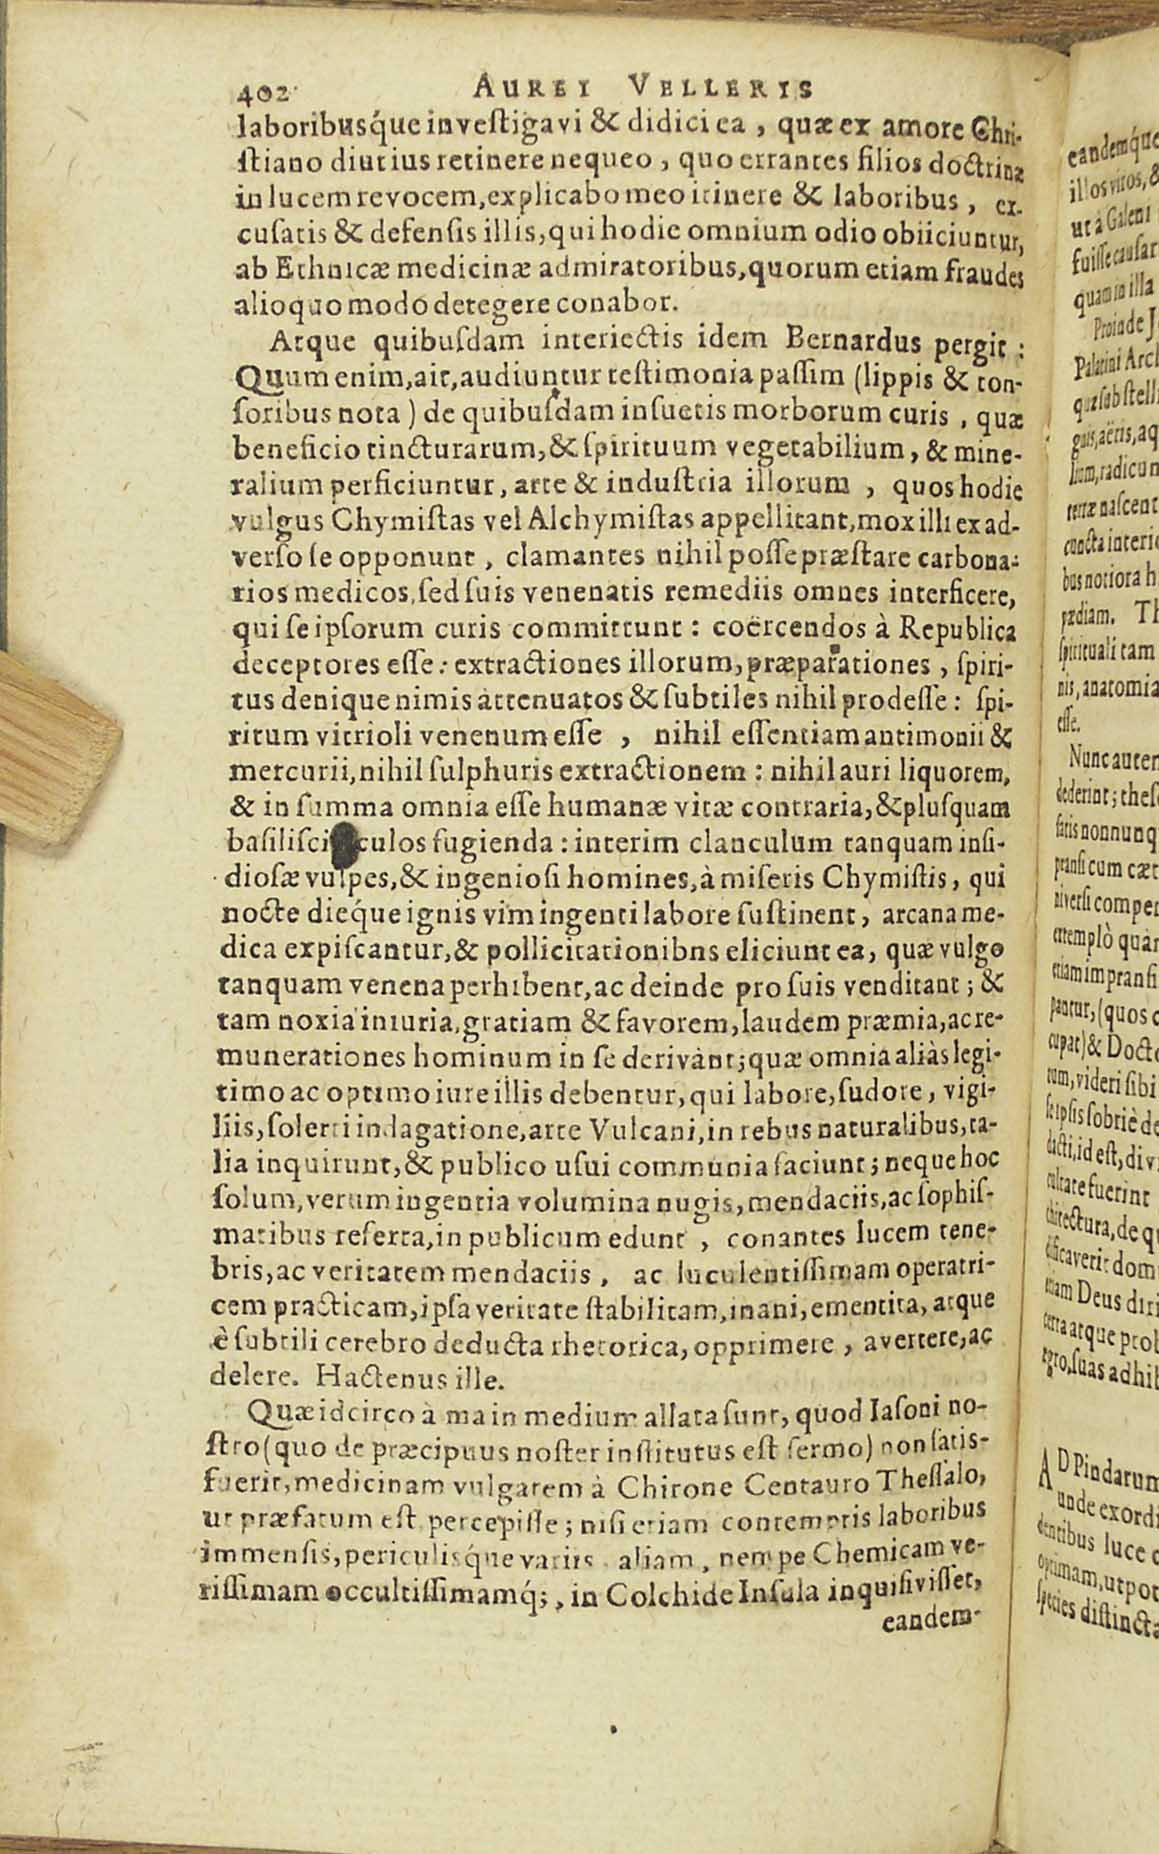 402 AUREI VELLERIS
laboribusq́ue investigavi & didici ea, quæ ex amore Chri-
stiano diutius retinere nequeo, quo errantes filios doctrinæ
in lucem revocem, explicabo meo itinere & laboribus, ex-
cusatis & defensis illis, qui hodie omnium odio obiiciuntur,
ab Ethnicæ medicinæ admiratoribus, quorum etiam fraudes
alio quo modo detegere conabor.
Atque quibusdam interiectis idem Bernardus pergit:
Quum enim, ait, audiuntur testimonia passim (lippis & ton-
soribus nota) de quibusdam insuetis morborum curis, quæ
beneficio tincturarum, & spirituum vegetabilium, & mine-
ralium perficiuntur, arte & industria illorum, quos hodie
vulgus Chymistas vel Alchymistas appellitant, mox illi ex ad-
verso se opponunt, clamantes nihil posse præstare carbona-
rios medicos, sed suis venenatis remediis omnes interficere,
qui se ipsorum curis committunt: coërcendos à Republica
deceptores esse: extractiones illorum, præparationes, spiri-
tus denique nimis attenuatos & subtiles nihil prodesse: spi-
ritum vitrioli venenum esse, nihil essentiam antimonii &
mercurii, nihil sulphuris extractionem: nihil auri liquorem,
& in summa omnia esse humanæ vitæ contraria, & plusquam
basilisci culos fugienda: interim clanculum tanquam insi-
diosæ vulpes, & ingeniosi homines, à miseris Chymistis, qui
nocte dieq́ue ignis vim ingenti labore sustinent, arcana me-
dica expiscantur, & pollicitationibns eliciunt ea, quæ vulgo
tanquam venena perhibent, ac deinde pro suis venditant; &
tam noxia iniuria, gratiam & favorem, laudem præmia, ac re-
munerationes hominum in se derivant; quæ omnia aliàs legi-
timo ac optimo iure illis debentur, qui labore, sudore, vigi-
liis, solerti indagatione, arte Vulcani, in rebus naturalibus, ta-
lia inquirunt, & publico usui communia faciunt; neque hoc
solum, verum ingentia volumina nugis, mendaciis, ac sophis-
matibus referta, in publicum edunt, conantes lucem tene-
bris, ac veritatem mendaciis, ac luculentissimam operatri-
cem practicam, ipsa veritate stabilitam, inani, ementita, atque
è subtili cerebro deducta rhetorica, opprimere, avertere, ac
delere. Hactenus ille.
Quæ idcirco à ma in medium allata sunt, quod Iasoni no-
stro (quo de præcipuus noster institutus est sermo) non satis-
fuerit, medicinam vulgarem à Chirone Centauro Thessalo,
ut præfatum est, percepisse; nisi etiam contemptis laboribus
immensis, periculisq́ue variis aliam, nempe Chemicam ve-
rissimam occultissimamq́;, in Colchide Insula inquisivisset,
eandem-
eandemq́ue
illos viros, &
ut à Galeni
fuisse causar
quam in illa
Proinde J
Palatini Arcl
quæ sub stell
guis, aëris, aq
lium, radicum
terræ nascent
cuncta interi
bus notiora h
pædiam. Th
spirituali tam
nis, anatomia
esse.
Nunc autem
dederint; thes
satis nonnunq
pransi cum cæt
niversi comper
extemplò quàm
etiam impransi
pantur, (quos c
cupat) & Docto
rum, videri sibi
se ipsis sobriè de
dacti, id est, div
cultate fuerint
chitectura, de qu
dificaverit dom
etiam Deus diri
terra atque prol
ægro, suas adhib
AD Pindarum
unde exordi
dentibus luce c
optimam, utpot
species distincta